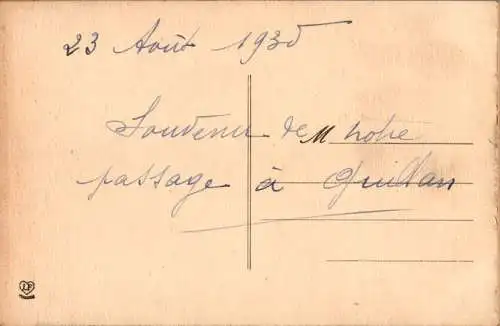 23 Août 1935
Souvenir de notre
passage à Quillan